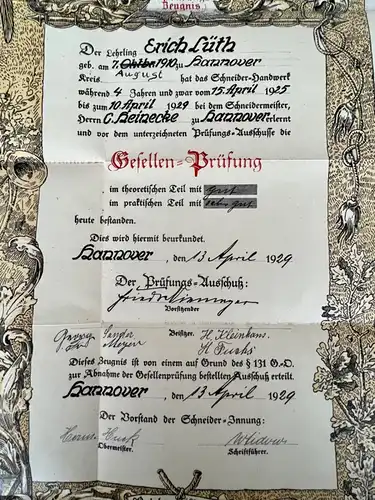 Zeugnis
Der Lehrling Erich Lüth
geb. am 7. Oktbr. 1910 zu Hannover
August
Kreis hat das Schneider-Handwerk
während 4 Jahren und zwar vom 15 April 1925
bis zum 10 April 1929 bei dem Schneidermeister,
Herrn C. Heinecke zu Hannover erlernt
und vor dem unterzeichneten Prüfungs-Ausschusse die
Gesellen=Prüfung
im theoretischen Teil mit gut
im praktischen Teil mit sehr gut
heute bestanden.
Dies wird hiermit beurkundet.
Hannover, den 13 April 1929
Der Prüfungs-Ausschuß:
Vorsitzender
Georg Beisitzer. H. Kleinhans
Meyer H. Fuchs
Dieses Zeugnis ist von einem auf Grund des § 131 G.-O.
zur Abnahme der Gesellenprüfung bestellten Ausschuß erteilt.
Hannover, den 13 April 1929
Der Vorstand der Schneider-Innung:
Obermeister. Schriftführer.